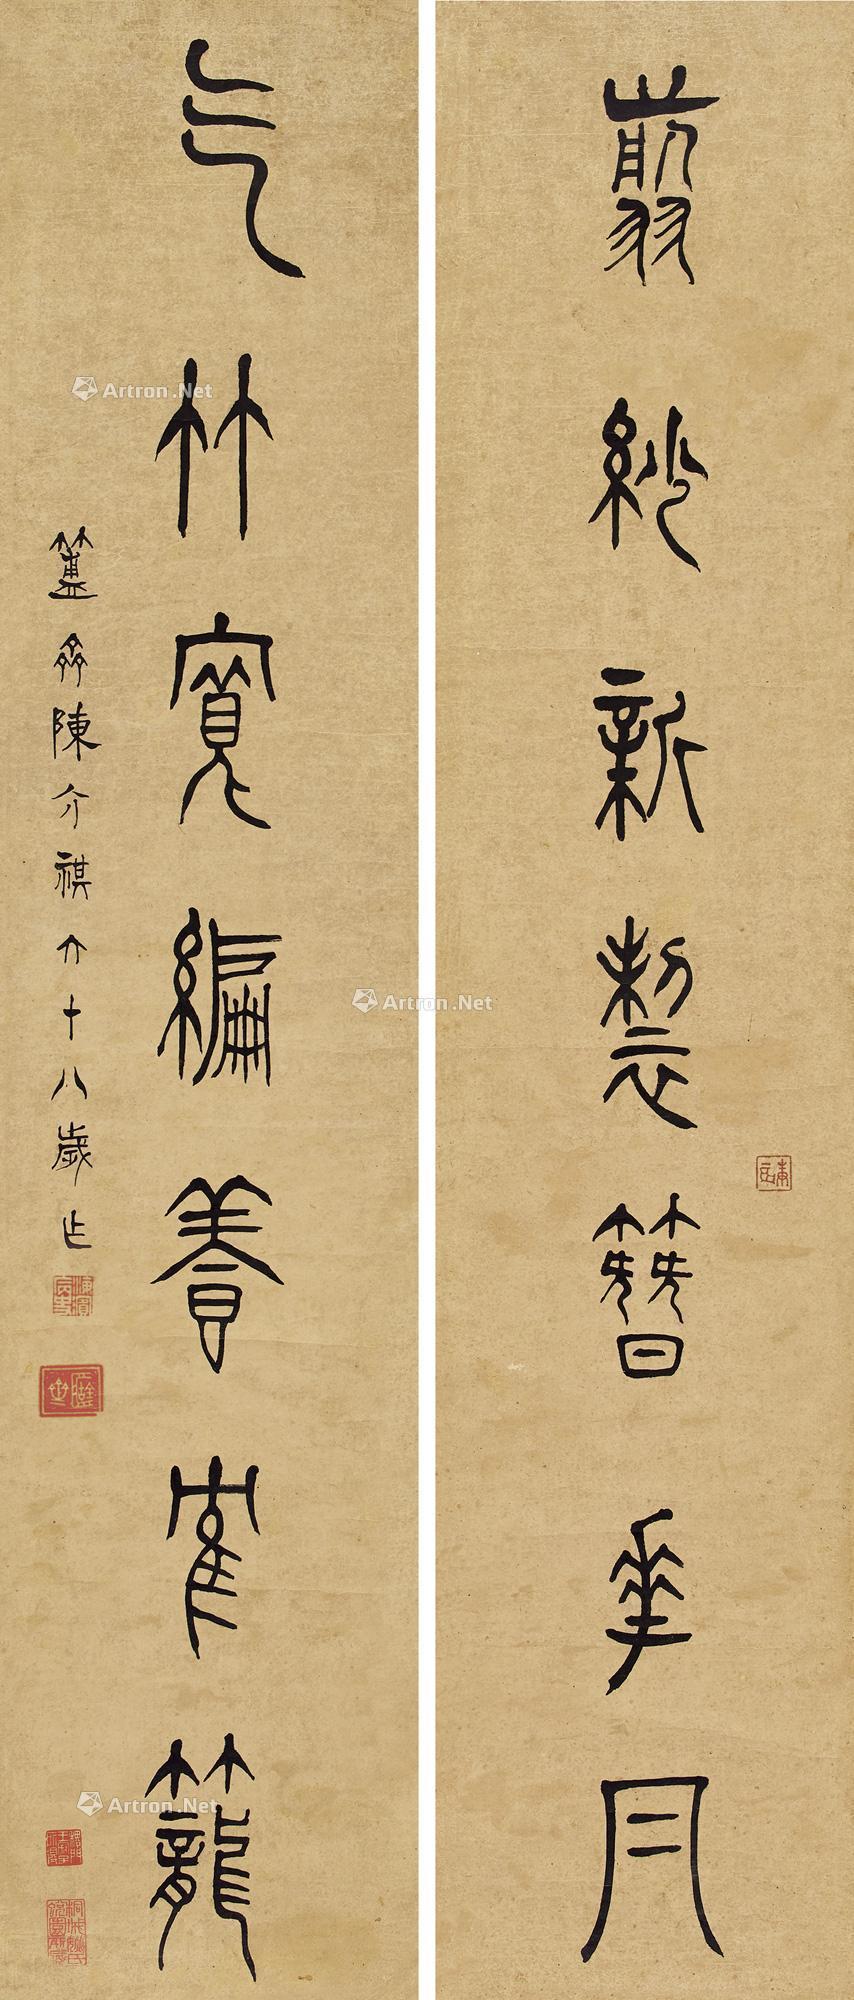 翦紗新製簪華冃
气竹寬編養隺籠
簠齋陳介祺六十八歲乍
海濱病史
Artron.Net
Artron.Net
Artron.Net